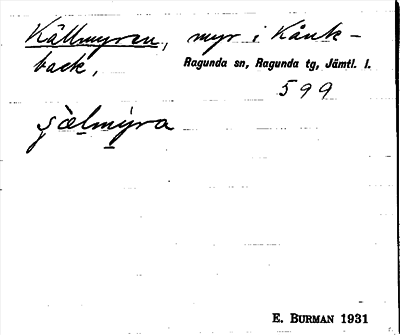 Källmyren, myr i Kånk-
back,
Ragunda sn, Ragunda tg, Jämtl. l.
599
ʂælmyra
E. BURMAN 1931